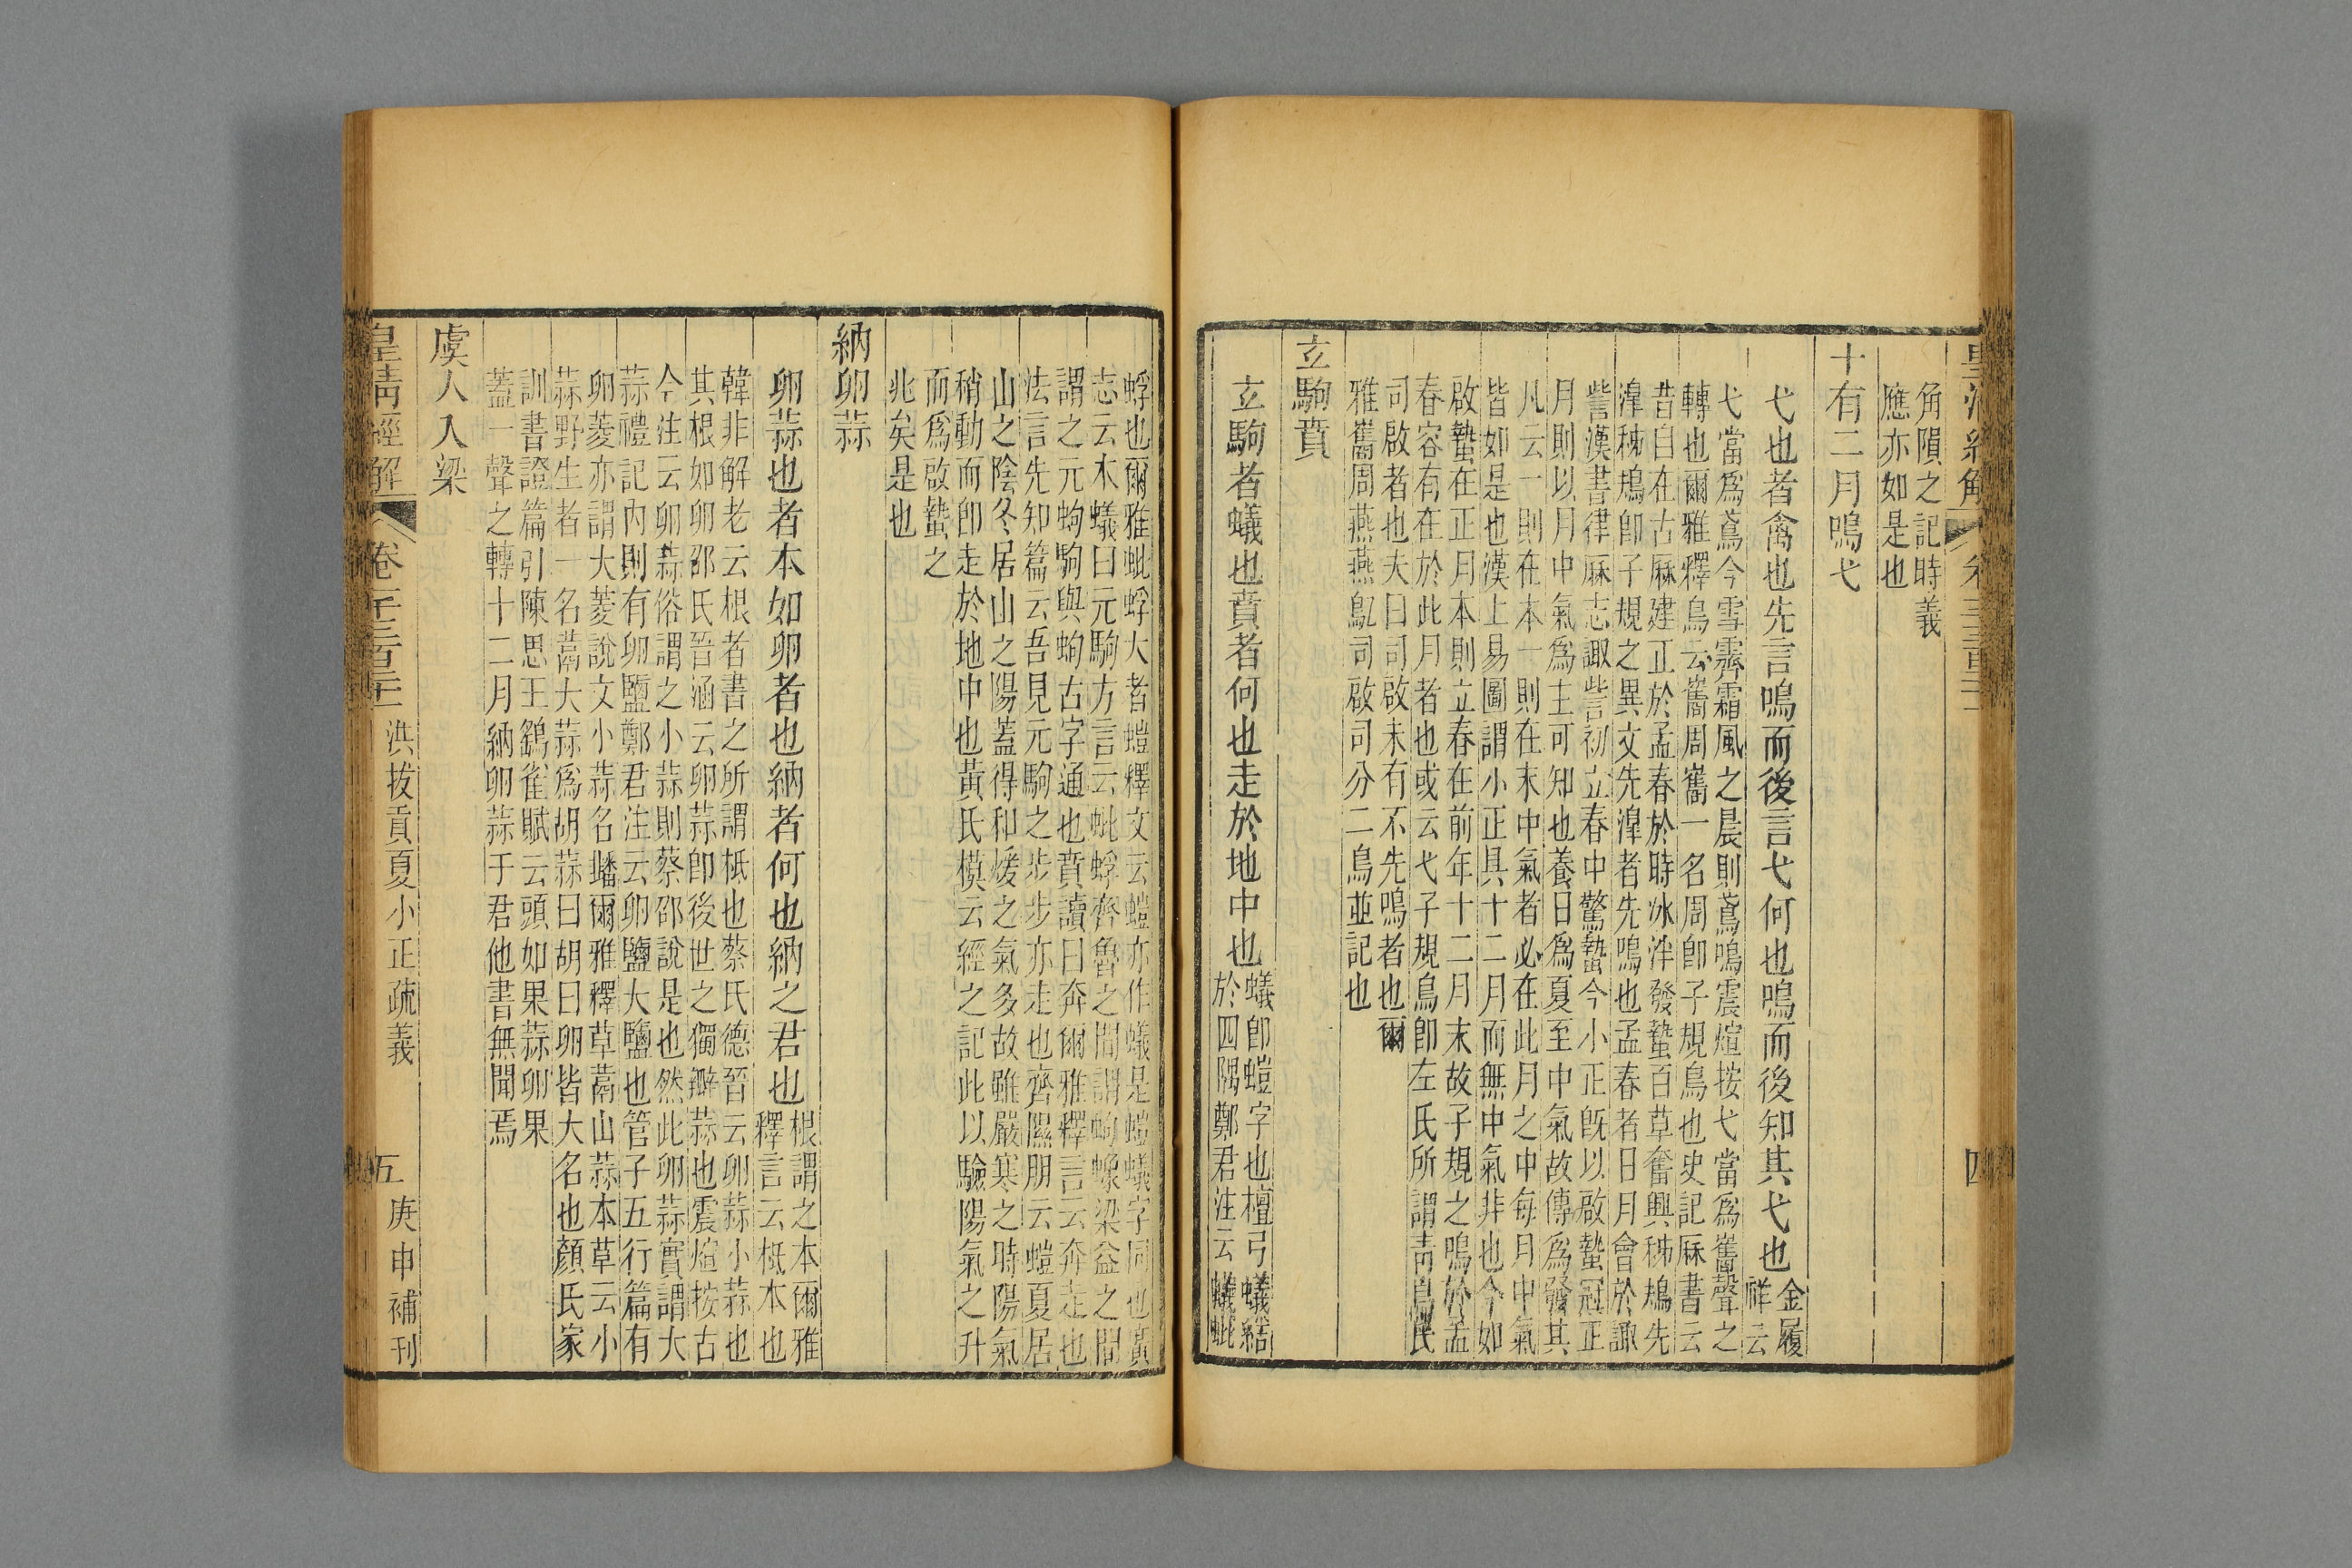 角隕之記時義
應亦如是也
十有二月鳴弋
弋也者禽也先言鳴而後言弋何也鳴而後知其弋也金履
祥云
弋當爲鳶今雪霽霜風之晨則鳶鳴震煊按弋當爲雟聲之
轉也爾雅釋鳥云雟周雟一名周卽子規鳥也史記厤書云
昔自在古厤建正於孟春於時冰泮發蟄百草奮興秭鳺先
滜秭鳺卽子規之異文先滜者先鳴也孟春者日月會於諏
訾漢書律厤志諏訾初立春中驚蟄今小正旣以啟蟄冠正
月則以月中氣爲主可知也養日爲夏至中氣故傳爲發其
凡云一則在本一則在末中氣者必在此月之中每月中氣
皆如是也漢上易圖謂小正具十二月而無中氣非也今如
啟蟄在正月本則立春在前年十二月末故子規之鳴於孟
春容有在於此月者也或云弋子規鳥卽左氏所謂靑鳥氏
司啟者也夫曰司啟未有不先鳴者也爾
雅雟周燕燕鳦司啟司分二鳥並記也
玄駒賁
玄駒者蟻也賁者何也走於地中也蟻卽螘字也檀弓蟻結
於四隅鄭君注云蟻蚍
蜉也爾雅蚍蜉大者螘釋文云螘亦作蟻是螘蟻字同也廣
志云木蟻曰元駒方言云蚍蜉齊魯之閒謂蚼蟓梁益之閒
謂之元蚼駒與蚼古字通也賁讀曰奔爾雅釋言云奔走也
法言先知篇云吾見元駒之步步亦走也齊隰朋云螘夏居
山之陰冬居山之陽蓋得和煖之氣多故雖嚴寒之時陽氣
稍動而卽走於地中也黃氏模云經之記此以驗陽氣之升
而爲啟蟄之
兆矣是也
納卵蒜
卵蒜也者本如卵者也納者何也納之君也根謂之本爾雅
釋言云柢本也
韓非解老云根者書之所謂柢也蔡氏德晉云卵蒜小蒜也
其根如卵邵氏晉涵云卵蒜卽後世之獨瓣蒜也震煊按古
今注云卵蒜俗謂之小蒜則蔡邵說是也然此卵蒜實謂大
蒜禮記內則有卵鹽鄭君注云卵鹽大鹽也管子五行篇有
卵菱亦謂大菱說文小蒜名䕊爾雅釋草蒚山蒜本草云小
蒜野生者一名蒚大蒜爲胡蒜曰胡曰卵皆大名也顏氏家
訓書證篇引陳思王鷂雀賦云頭如果蒜卵果
蓋一聲之轉十二月納卵蒜于君他書無聞焉
虞人入梁
皇清經解 卷 洪拔貢夏小正疏義 五 庚申補刊